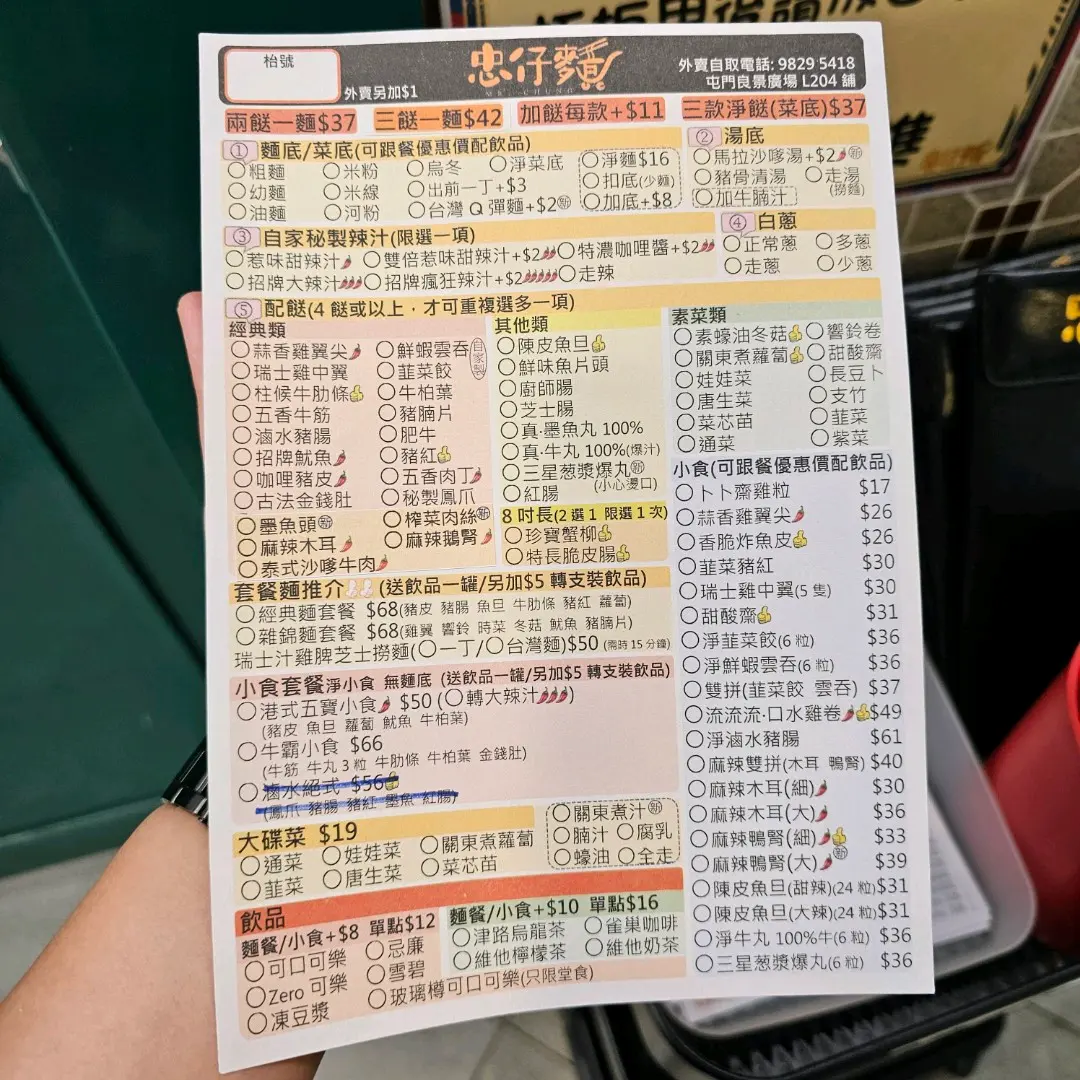 枱號
忠仔麵
MR. CHUNG
外賣另加$1
外賣自取電話: 9829 5418
屯門良景廣場 L204 舖
兩餸一麵$37 三餸一麵$42 加餸每款+$11 三款淨餸(菜底)$37
① 麵底/菜底(可跟餐優惠價配飲品)
粗麵 米粉 烏冬 淨菜底
幼麵 米線 出前一丁+$3
油麵 河粉 台灣 Q 彈麵+$2新
淨麵$16
扣底(少麵)
加底+$8
② 湯底
馬拉沙嗲湯+$2新
豬骨清湯 走湯(撈麵)
加牛腩汁
③ 自家秘製辣汁(限選一項)
惹味甜辣汁 雙倍惹味甜辣汁+$2 特濃咖哩醬+$2
招牌大辣汁 招牌瘋狂辣汁+$2 走辣
④ 白蔥
正常蔥 多蔥
走蔥 少蔥
⑤ 配餸(4 餸或以上，才可重複選多一項)
經典類
蒜香雞翼尖 鮮蝦雲吞 自家製
瑞士雞中翼 韮菜餃
柱候牛肋條 牛柏葉
五香牛筋 豬腩片
滷水豬腸 肥牛
招牌魷魚 豬紅
咖哩豬皮 五香肉丁
古法金錢肚 秘製鳳爪
墨魚頭新 榨菜肉絲新
麻辣木耳 麻辣鵝腎
泰式沙嗲牛肉
其他類
陳皮魚旦
鮮味魚片頭
廚師腸
芝士腸
真·墨魚丸 100%
真·牛丸 100%(爆汁)
三星葱漿爆丸新
(小心燙口)
紅腸
8 吋長(2 選 1 限選 1 次)
珍寶蟹柳
特長脆皮腸
素菜類
素蠔油冬菇 響鈴卷
關東煮蘿蔔 甜酸齋
娃娃菜 長豆卜
唐生菜 支竹
菜芯苗 韮菜
通菜 紫菜
小食(可跟餐優惠價配飲品)
卜卜齋雞粒 $17
蒜香雞翼尖 $26
香脆炸魚皮 $26
韮菜豬紅 $30
瑞士雞中翼(5 隻) $30
甜酸齋 $31
淨韮菜餃(6 粒) $36
淨鮮蝦雲吞(6 粒) $36
雙拼(韮菜餃 雲吞) $37
流流流·口水雞卷 $49
淨滷水豬腸 $61
麻辣雙拼(木耳 鴨腎) $40
麻辣木耳(細) $30
麻辣木耳(大) $36
麻辣鴨腎(細) $33
麻辣鴨腎(大)新 $39
陳皮魚旦(甜辣)(24 粒)$31
陳皮魚旦(大辣)(24 粒)$31
淨牛丸 100%牛(6 粒) $36
三星葱漿爆丸(6 粒) $36
套餐麵推介 (送飲品一罐/另加$5 轉支裝飲品)
經典麵套餐 $68(豬皮 豬腸 魚旦 牛肋條 豬紅 蘿蔔)
雜錦麵套餐 $68(雞翼 響鈴 時菜 冬菇 魷魚 豬腩片)
瑞士汁雞脾芝士撈麵(一丁/台灣麵)$50 (需時 15 分鐘)
小食套餐 淨小食 無麵底 (送飲品一罐/另加$5 轉支裝飲品)
港式五寶小食 $50 (轉大辣汁)
(豬皮 魚旦 蘿蔔 魷魚 牛柏葉)
牛霸小食 $66
(牛筋 牛丸 3 粒 牛肋條 牛柏葉 金錢肚)
滷水絕式 $56
(鳳爪 豬腸 豬紅 墨魚 紅腸)
大碟菜 $19
通菜 娃娃菜 關東煮蘿蔔
韮菜 唐生菜 菜芯苗
關東煮汁新
腩汁 腐乳
蠔油 全走
飲品
麵餐/小食+$8 單點$12
可口可樂 忌廉
Zero 可樂 雪碧
凍豆漿 玻璃樽可口可樂(只限堂食)
麵餐/小食+$10 單點$16
津路烏龍茶 雀巢咖啡
維他檸檬茶 維他奶茶